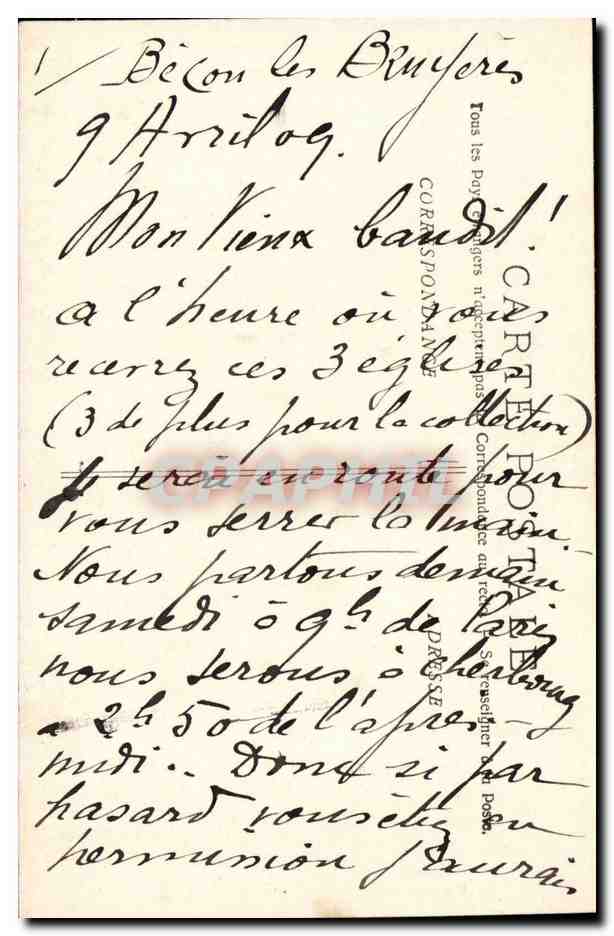 1/ Bécon les Bruyères
9 Avril 09.
Mon Vieux bandit !
a l'heure où vous
recevrez ces 3 églises
(3 de plus pour la collection)
Je serai en route pour
vous serrer la main.
Nous partons demain
samedi à 9h de Paris
nous serons à Cherbourg
à 2h 50 de l'après-
midi.. Donc si par
hasard vous étiez en
permission j'aurais
CARTE POSTALE
Tous les Pays étrangers n'acceptent pas la Correspondance au recto. Se renseigner à la Poste.
CORRESPONDANCE
ADRESSE
CPAPHIL